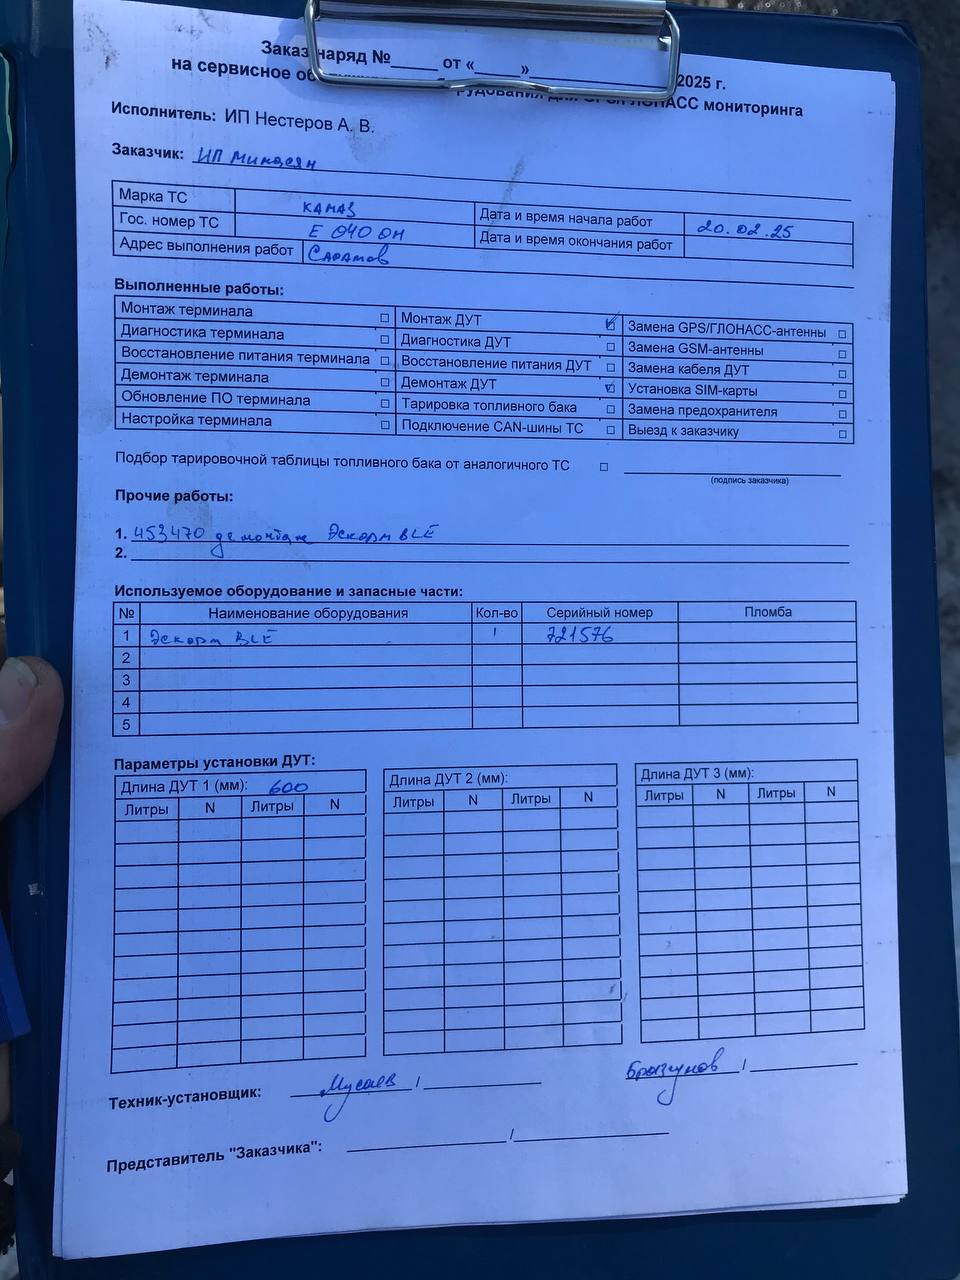 Заказ наряд №_____ от «_____»_______________ 2025 г.
на сервисное ГЛОНАСС мониторинга
Исполнитель: ИП Нестеров А. В.
Заказчик: ИП Минасян
Марка ТС КАМАЗ Дата и время начала работ 20.02.25
Гос. номер ТС Е 040 ОН Дата и время окончания работ
Адрес выполнения работ Саратов
Выполненные работы:
Монтаж терминала ☐ Монтаж ДУТ ☑ Замена GPS/ГЛОНАСС-антенны ☐
Диагностика терминала ☐ Диагностика ДУТ ☐ Замена GSM-антенны ☐
Восстановление питания терминала ☐ Восстановление питания ДУТ ☐ Замена кабеля ДУТ ☐
Демонтаж терминала ☐ Демонтаж ДУТ ☑ Установка SIM-карты ☐
Обновление ПО терминала ☐ Тарировка топливного бака ☐ Замена предохранителя ☐
Настройка терминала ☐ Подключение CAN-шины ТС ☐ Выезд к заказчику ☐
Подбор тарировочной таблицы топливного бака от аналогичного ТС ☐
(подпись заказчика)
Прочие работы:
1. 453470 демонтаж Эскорт BLE
2.
Используемое оборудование и запасные части:
№ Наименование оборудования Кол-во Серийный номер Пломба
1 Эскорт BLE 1 721576
2
3
4
5
Параметры установки ДУТ:
Длина ДУТ 1 (мм): 600 Длина ДУТ 2 (мм): Длина ДУТ 3 (мм):
Литры N Литры N Литры N Литры N Литры N Литры N
Техник-установщик: Мусаев / Брызгунов /
Представитель "Заказчика": /